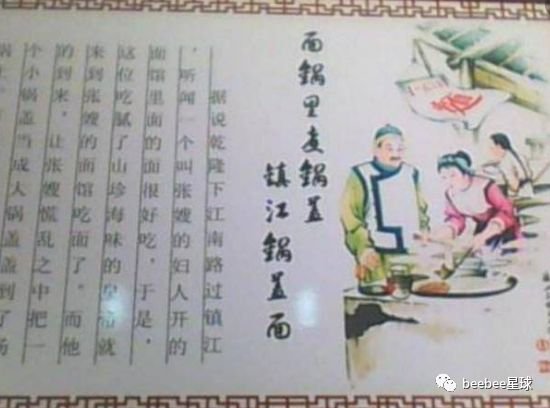 面鍋里煮鍋盖
鎮江鍋盖面
据说乾隆下江南路过镇江
，听闻一个叫张嫂的妇人开的
面馆里面的面很好吃，于是，
这位吃腻了山珍海味的皇帝就
来到张嫂的面馆吃面了。而他
的到来，让张嫂慌乱之中把一
个小锅盖当成大锅盖盖到了汤
beebee星球